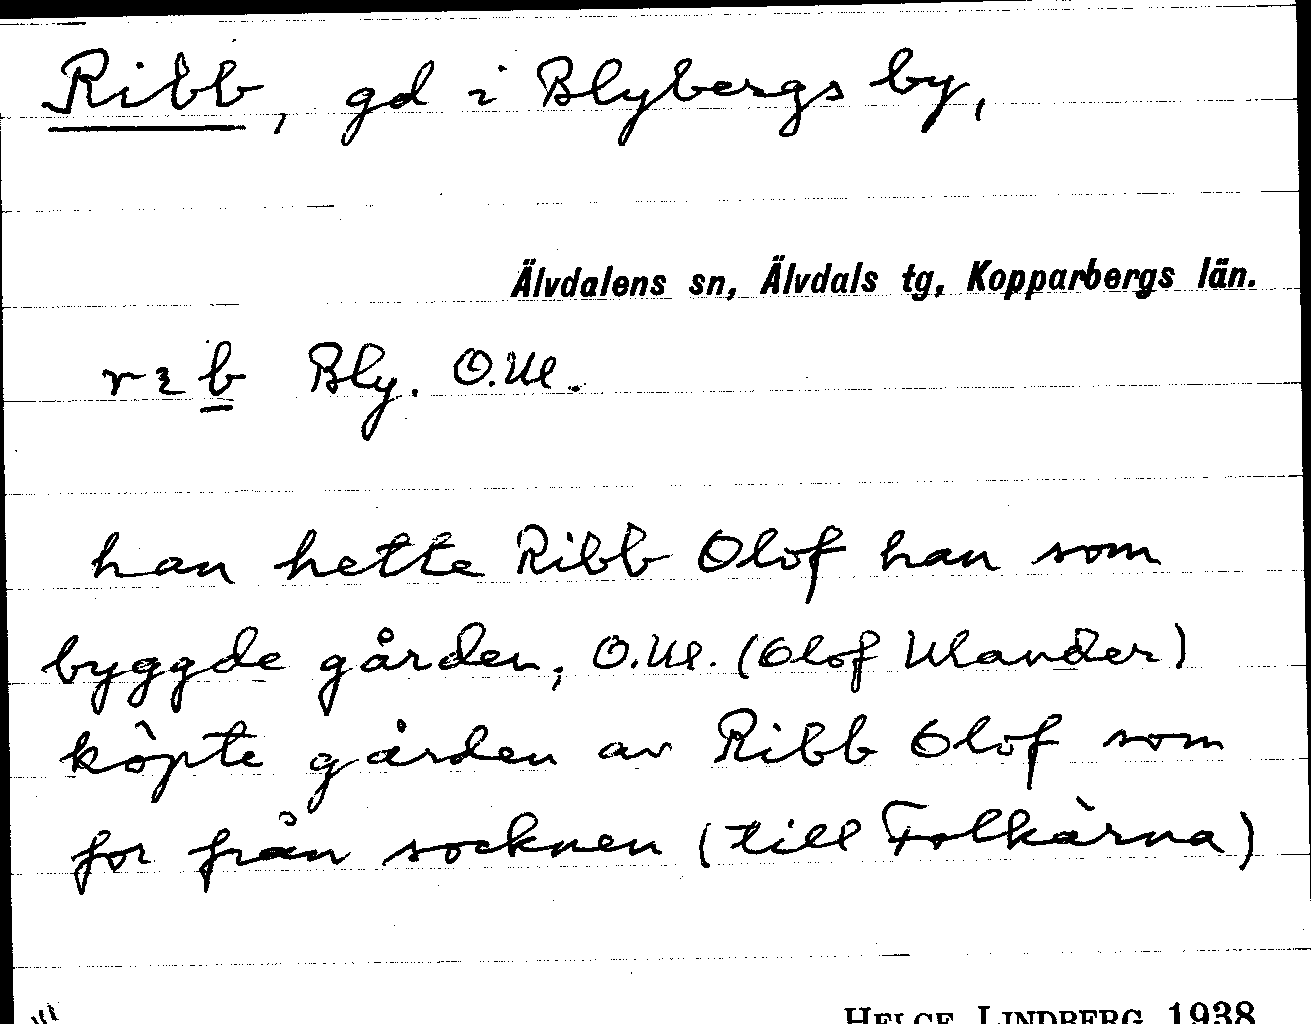 Ribb, gd i Blybergs by,
Älvdalens sn, Älvdals tg, Kopparbergs län.
rɪb Bly. O.Ul.
han hette Ribb Olof han som
byggde gården, O.Ul. (Olof Ulander)
köpte gården av Ribb Olof som
for från socknen (till Folkärna)
HELGE LINDBERG 1938